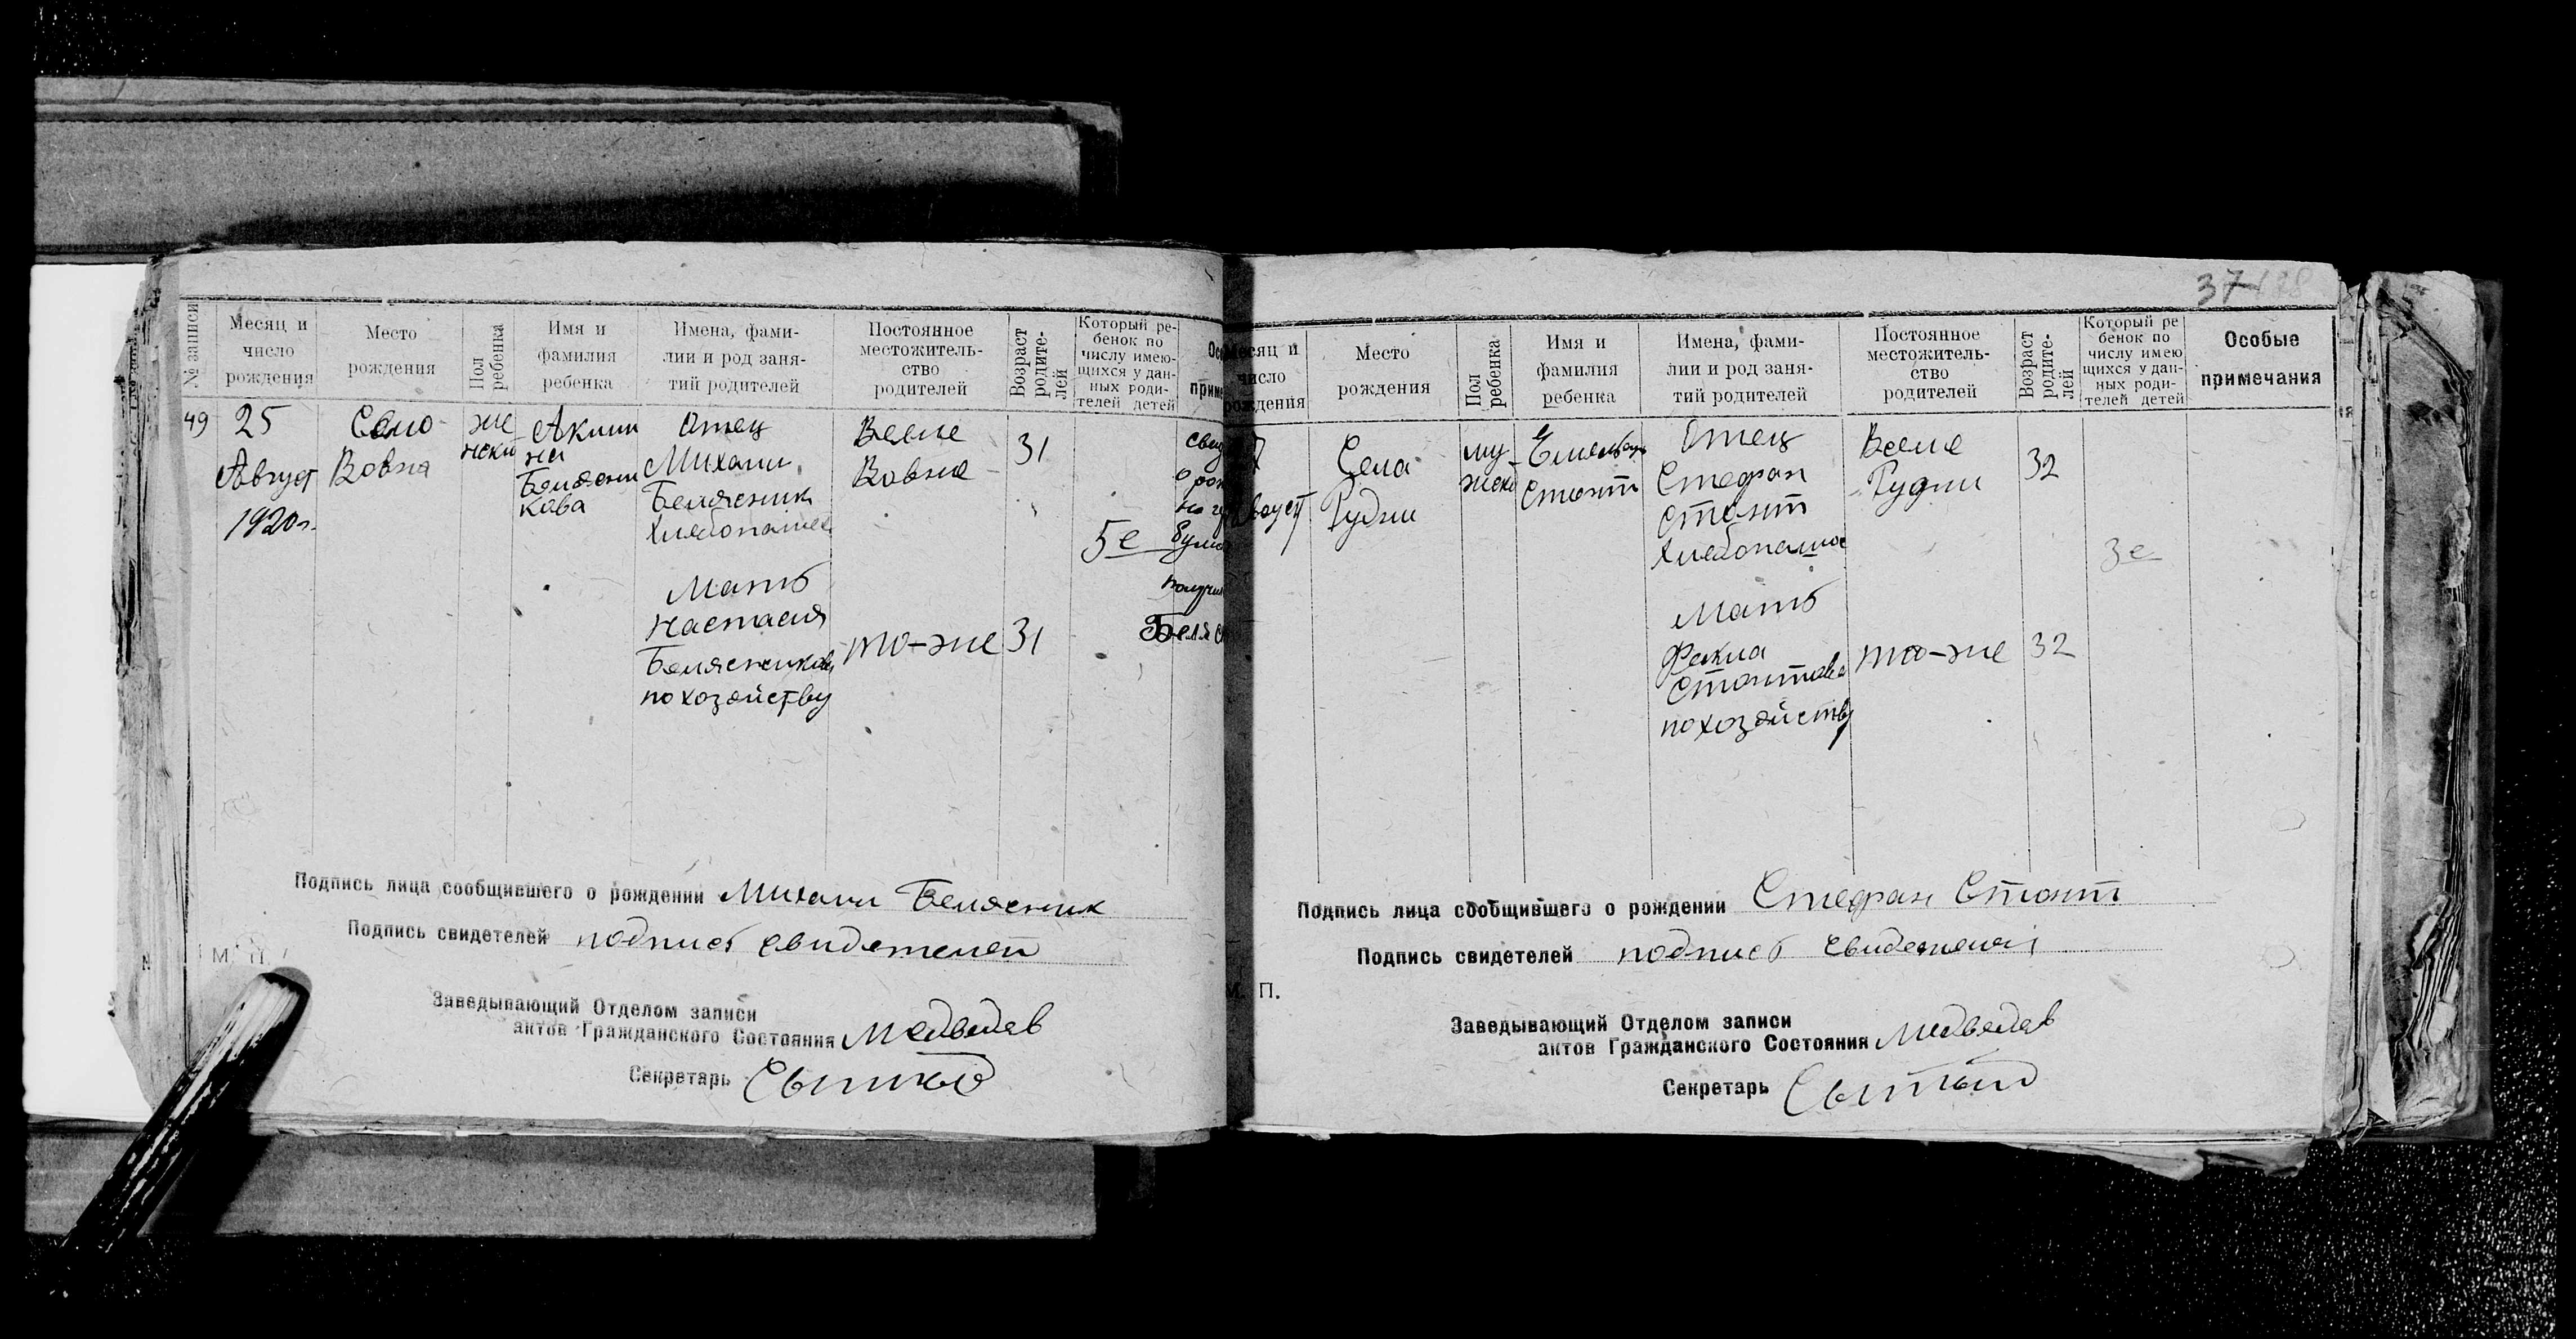 37
№ записи
Месяц и
число
рождения
Место
рождения
Пол
ребенка
Имя и
фамилия
ребенка
Имена, фами-
лии и род заня-
тий родителей
Постоянное
местожитель-
ство
родителей
Возраст
родите-
лей
Который ре-
бенок по
числу имею-
щихся у дан-
ных роди-
телей детей
49
25
Август
1920 г.
Село
Вовна
же
нски
Акили
на
Белясни
кова
Отец
Михаил
Белясник
хлебопашец
Мать
Настасия
Белясникова
по хозяйству
Селе
Вовне
то-же
31
31
5е
Подпись лица сообщившего о рождении Михаил Белясник
Подпись свидетелей подпись свидетелей
М. П.
Заведывающий Отделом записи
актов Гражданского Состояния Медведев
Секретарь
есяц и
число
рождения
Место
рождения
Пол
ребенка
Имя и
фамилия
ребенка
Имена, фами-
лии и род заня-
тий родителей
Постоянное
местожитель-
ство
родителей
Возраст
родите-
лей
Который ре
бенок по
числу имею
щихся у дан-
ных роди-
телей детей
Особые
примечания
7
август
Села
Рудни
му
жски
Емельян
Стонт
Отец
Стефан
Стонт
хлебопашец
Мать
Фекла
Стонтова
по хозяйству
Селе
Рудни
то-же
32
32
3е
Подпись лица сообщившего о рождении Стефан Стонт
Подпись свидетелей подпись свидетелей
М. П.
Заведывающий Отделом записи
актов Гражданского Состояния Медведев
Секретарь